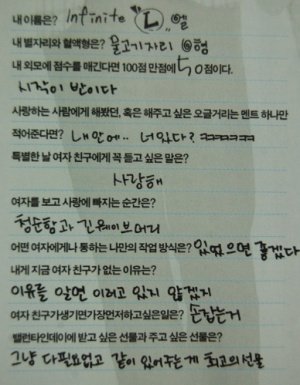 내 이름은? Infinite "L",, 엘
내 별자리와 혈액형은? 물고기자리 O형
내 외모에 점수를 매긴다면 100점 만점에 50점이다.
시작이 반이다
사랑하는 사람에게 해봤던, 혹은 해주고 싶은 오글거리는 멘트 하나만
적어준다면? 내안에.. 너있다? ㅋㅋㅋㅋㅋ
특별한 날 여자 친구에게 꼭 듣고 싶은 말은?
사랑해
여자를 보고 사랑에 빠지는 순간은?
청순함과 긴웨이브머리
어떤 여자에게나 통하는 나만의 작업 방식은? 있었으면 좋겠다
내게 지금 여자 친구가 없는 이유는?
이유를 알면 이러고 있지 않겠지
여자 친구가 생기면 가장 먼저 하고 싶은 일은? 손잡는거
밸런타인데이에 받고 싶은 선물과 주고 싶은 선물은?
그냥 다필요없고 같이 있어주는게 최고의선물